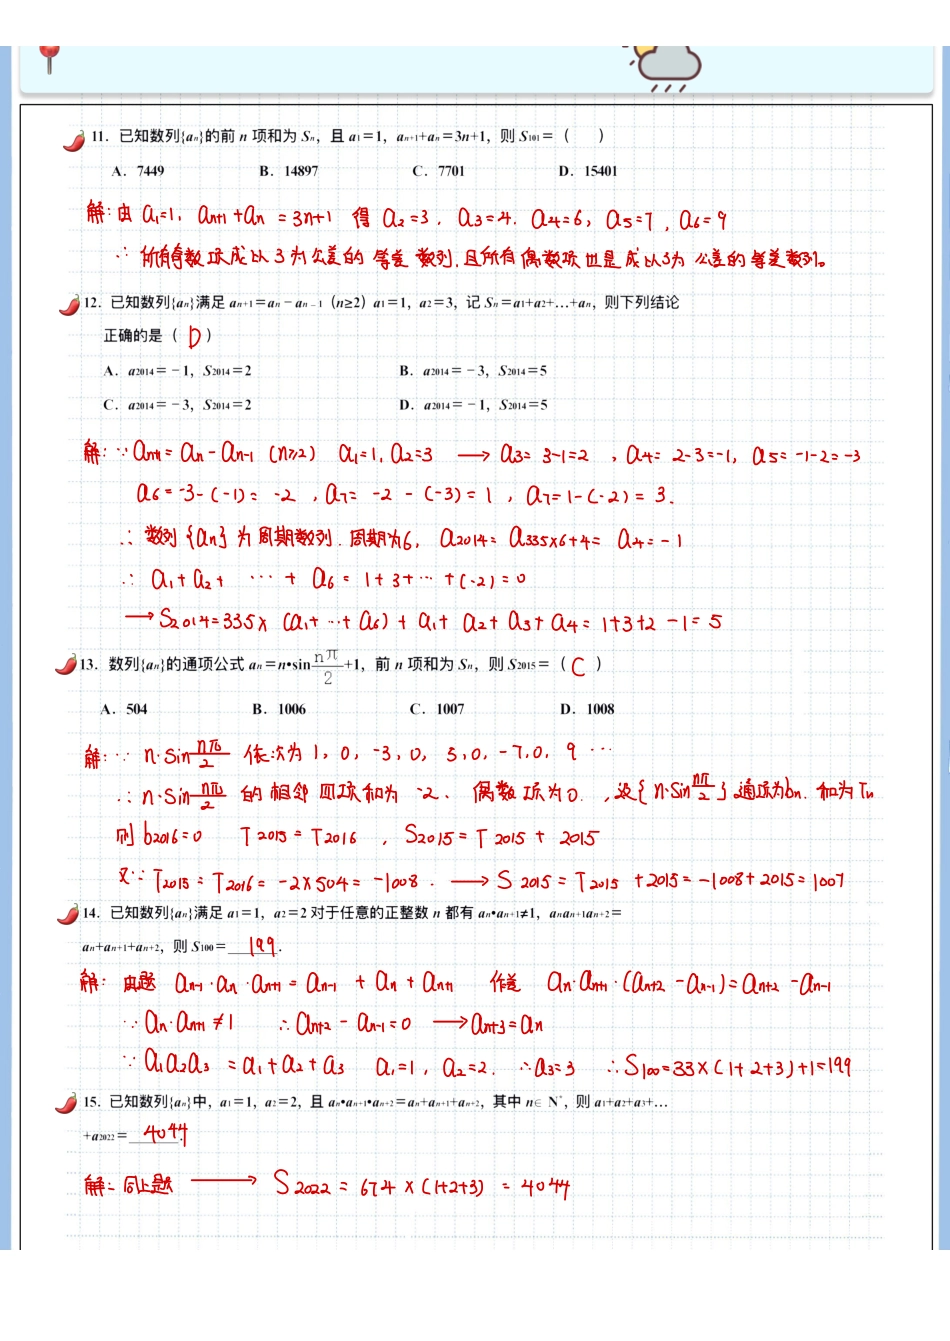 11．已知数列{an}的前 n 项和为 Sn，且 a1＝1，an+1+an＝3n+1，则 S101＝（　　）
A．7449　B．14897　C．7701　D．15401
解：由 a1=1, an+1+an = 3n+1 得 a2=3. a3=4. a4=6, a5=7, a6=9
∴ 所有奇数项成以3为公差的等差数列.且所有偶数项也是成以3为公差的等差数列。
12．已知数列{an}满足 an+1＝an－an－1（n≥2）a1＝1，a2＝3，记 Sn＝a1+a2+…+an，则下列结论
正确的是（ D ）
A．a2014＝－1，S2014＝2　B．a2014＝－3，S2014＝5
C．a2014＝－3，S2014＝2　D．a2014＝－1，S2014＝5
解：∵ an+1= an - an-1 (n≥2) a1=1, a2=3 → a3= 3-1=2 , a4= 2-3=-1, a5= -1-2=-3
a6=-3-(-1)= -2 , a7= -2 - (-3)= 1 , a7=1-(-2)= 3.
∴ 数列{an}为周期数列. 周期为6, a2014= a335×6+4= a4=-1
∴ a1+ a2+ ··· + a6= 1+3+··· +(-2)=0
→ S2014=335× (a1+ ···+ a6) + a1+ a2+ a3+ a4= 1+3+2 -1= 5
13．数列{an}的通项公式 an＝n•sin nπ/2 +1，前 n 项和为 Sn，则 S2015＝（ C ）
A．504　B．1006　C．1007　D．1008
解：∵ n·sin nπ/2 依次为 1, 0, -3, 0, 5, 0, -7, 0, 9 ···
∴ n·sin nπ/2 的相邻四项和为 -2、 偶数项为0. ,设{n·sin nπ/2}通项为bn. 和为Tn
则 b2016=0 T2015=T2016 , S2015=T2015 + 2015
又∵ T2015=T2016= -2×504= -1008 . → S2015=T2015 +2015=-1008+2015=1007
14．已知数列{an}满足 a1＝1，a2＝2 对于任意的正整数 n 都有 an•an+1≠1，anan+1an+2＝
an+an+1+an+2，则 S100＝ 199 ．
解： 由题 an-1·an·an+1 = an-1 + an + an+1 作差 an·an+1·(an+2 -an-1)=an+2 -an-1
∵ an·an+1 ≠1 ∴ an+2 - an-1=0 → an+3=an
∵ a1a2a3 =a1+a2+a3 a1=1, a2=2. ∴a3=3 ∴S100=33×(1+2+3)+1=199
15．已知数列{an}中，a1＝1，a2＝2，且 an•an+1•an+2＝an+an+1+an+2，其中 n∈N*，则 a1+a2+a3+…
+a2022＝ 4044 ．
解：同上题 → S2022 = 674×(1+2+3) = 4044